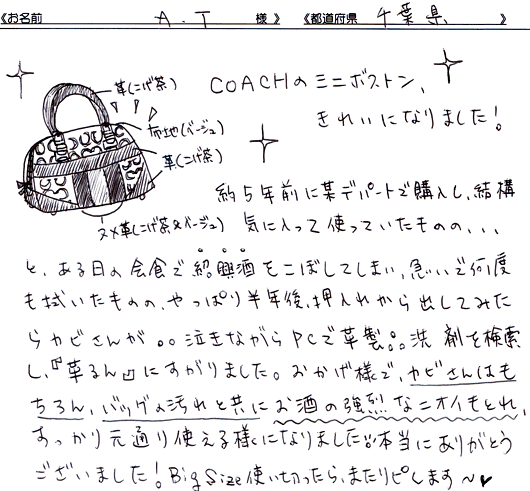 《お名前 A.T 様》 《都道府県 千葉県 》
革(こげ茶)
COACHのミニボストン、
布地(ベージュ)
きれいになりました!
革(こげ茶)
ヌメ革(こげ茶&ベージュ)
約5年前に某デパートで購入し、結構
気に入って使っていたものの、、、
と、ある日の会食で紹興酒をこぼしてしまい、急いで何度
も拭いたものの、やっぱり半年後、押入れから出してみた
らカビさんが。。泣きながらPCで革製。。洗剤を検索
し、『革るん』にすがりました。おかげ様で、カビさんはも
ちろん、バッグの汚れと共にお酒の強烈なニオイもとれ、
すっかり元通り使える様になりました!!本当にありがとう
ございました!Big Size使い切ったら、またリピします〜♥